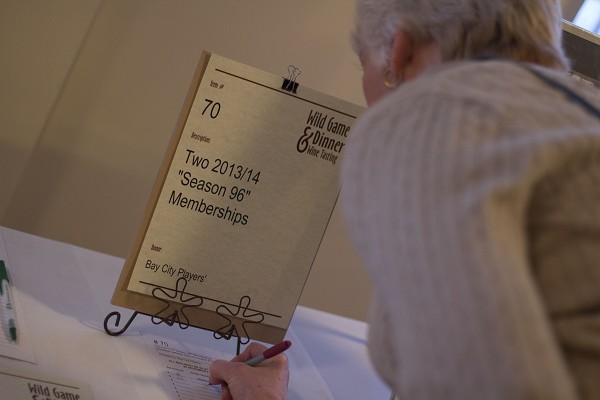 Item #
70
Wild Game
& Dinner
Wine Tasting
Description
Two 2013/14
"Season 96"
Memberships
Donor
Bay City Players'
# 70
Wild Game